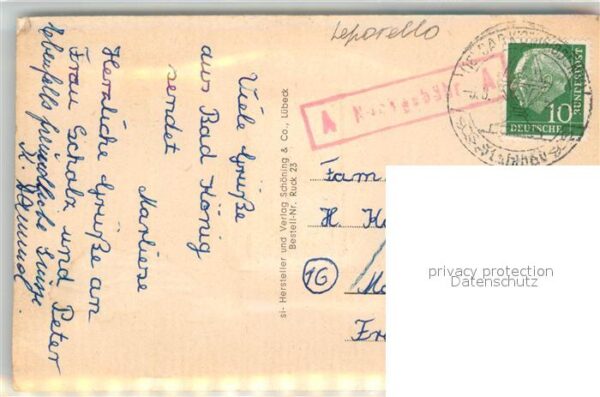 Leporello
Viele Grüße
aus Bad König
sendet
Marliese
Herzliche Grüße an
Frau Scholz und Peter
Ebenfalls freundliche Grüße
si- Hersteller und Verlag Schöning & Co., Lübeck
Bestell-Nr. Ruck 23
A A
10
DEUTSCHE
BUNDESPOST
Fam
H. H
16
Fr
privacy protection
Datenschutz